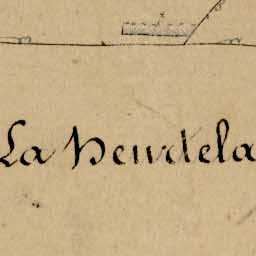 La Heurtela